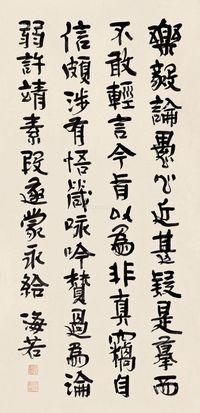 樂毅論愚心近甚疑是摹而
不敢輕言今旨以為非真竊自
信頗涉有悟箴咏吟贊過為淪
弱許靖素段遂蒙永給 海若